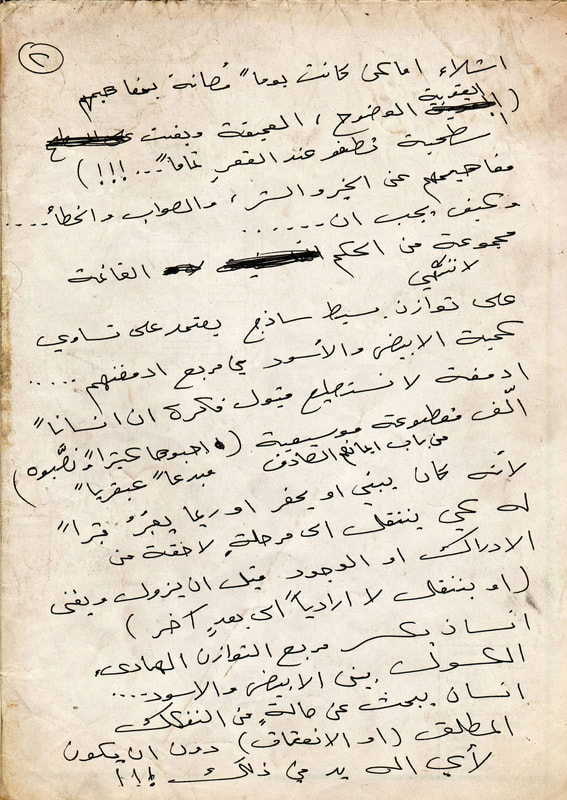 ٢
اشلاء اماكن كانت يوماً مُصانة بمفاهيمهم
(العفوية الوضوح ، العميقة وبقيت
سطحية تطفو عند القفر تماماً ... !!!)
مفاهيمهم عن الخير والشر ، والصواب والخطأ ....
وكيف يجب ان ......
مجموعة من الحكم القائمة
لا تنتهي
على توازن بسيط ساذج يعتمد على تساوي
كمية الابيض والأسود في مربع ادمغتهم .....
ادمغة لا تستطيع قبول فكرة ان انساناً
ألّف مقطوعة موسيقية (احبوها كثيراً ونصَّبوه
من باب ايمانهم الصادف مبدعاً عبقرياً)
لأنه كان يبني او يحفر او ربما يهز قبراً
له كي ينتقل الى مرحلةٍ لاحقة من
الادراك او الوجود قبل ان يزول ويفنى
(او ينتقل لا ارادياً الى بعدٍ آخر)
انسان يكسر مربع التوازن الهادئ
بين الابيض والاسود ....
انسان يبحث عن حالةٍ من التفكك
المطلق (او الانعتاق) دون ان يكون
لأي اله يد في ذلك !!!